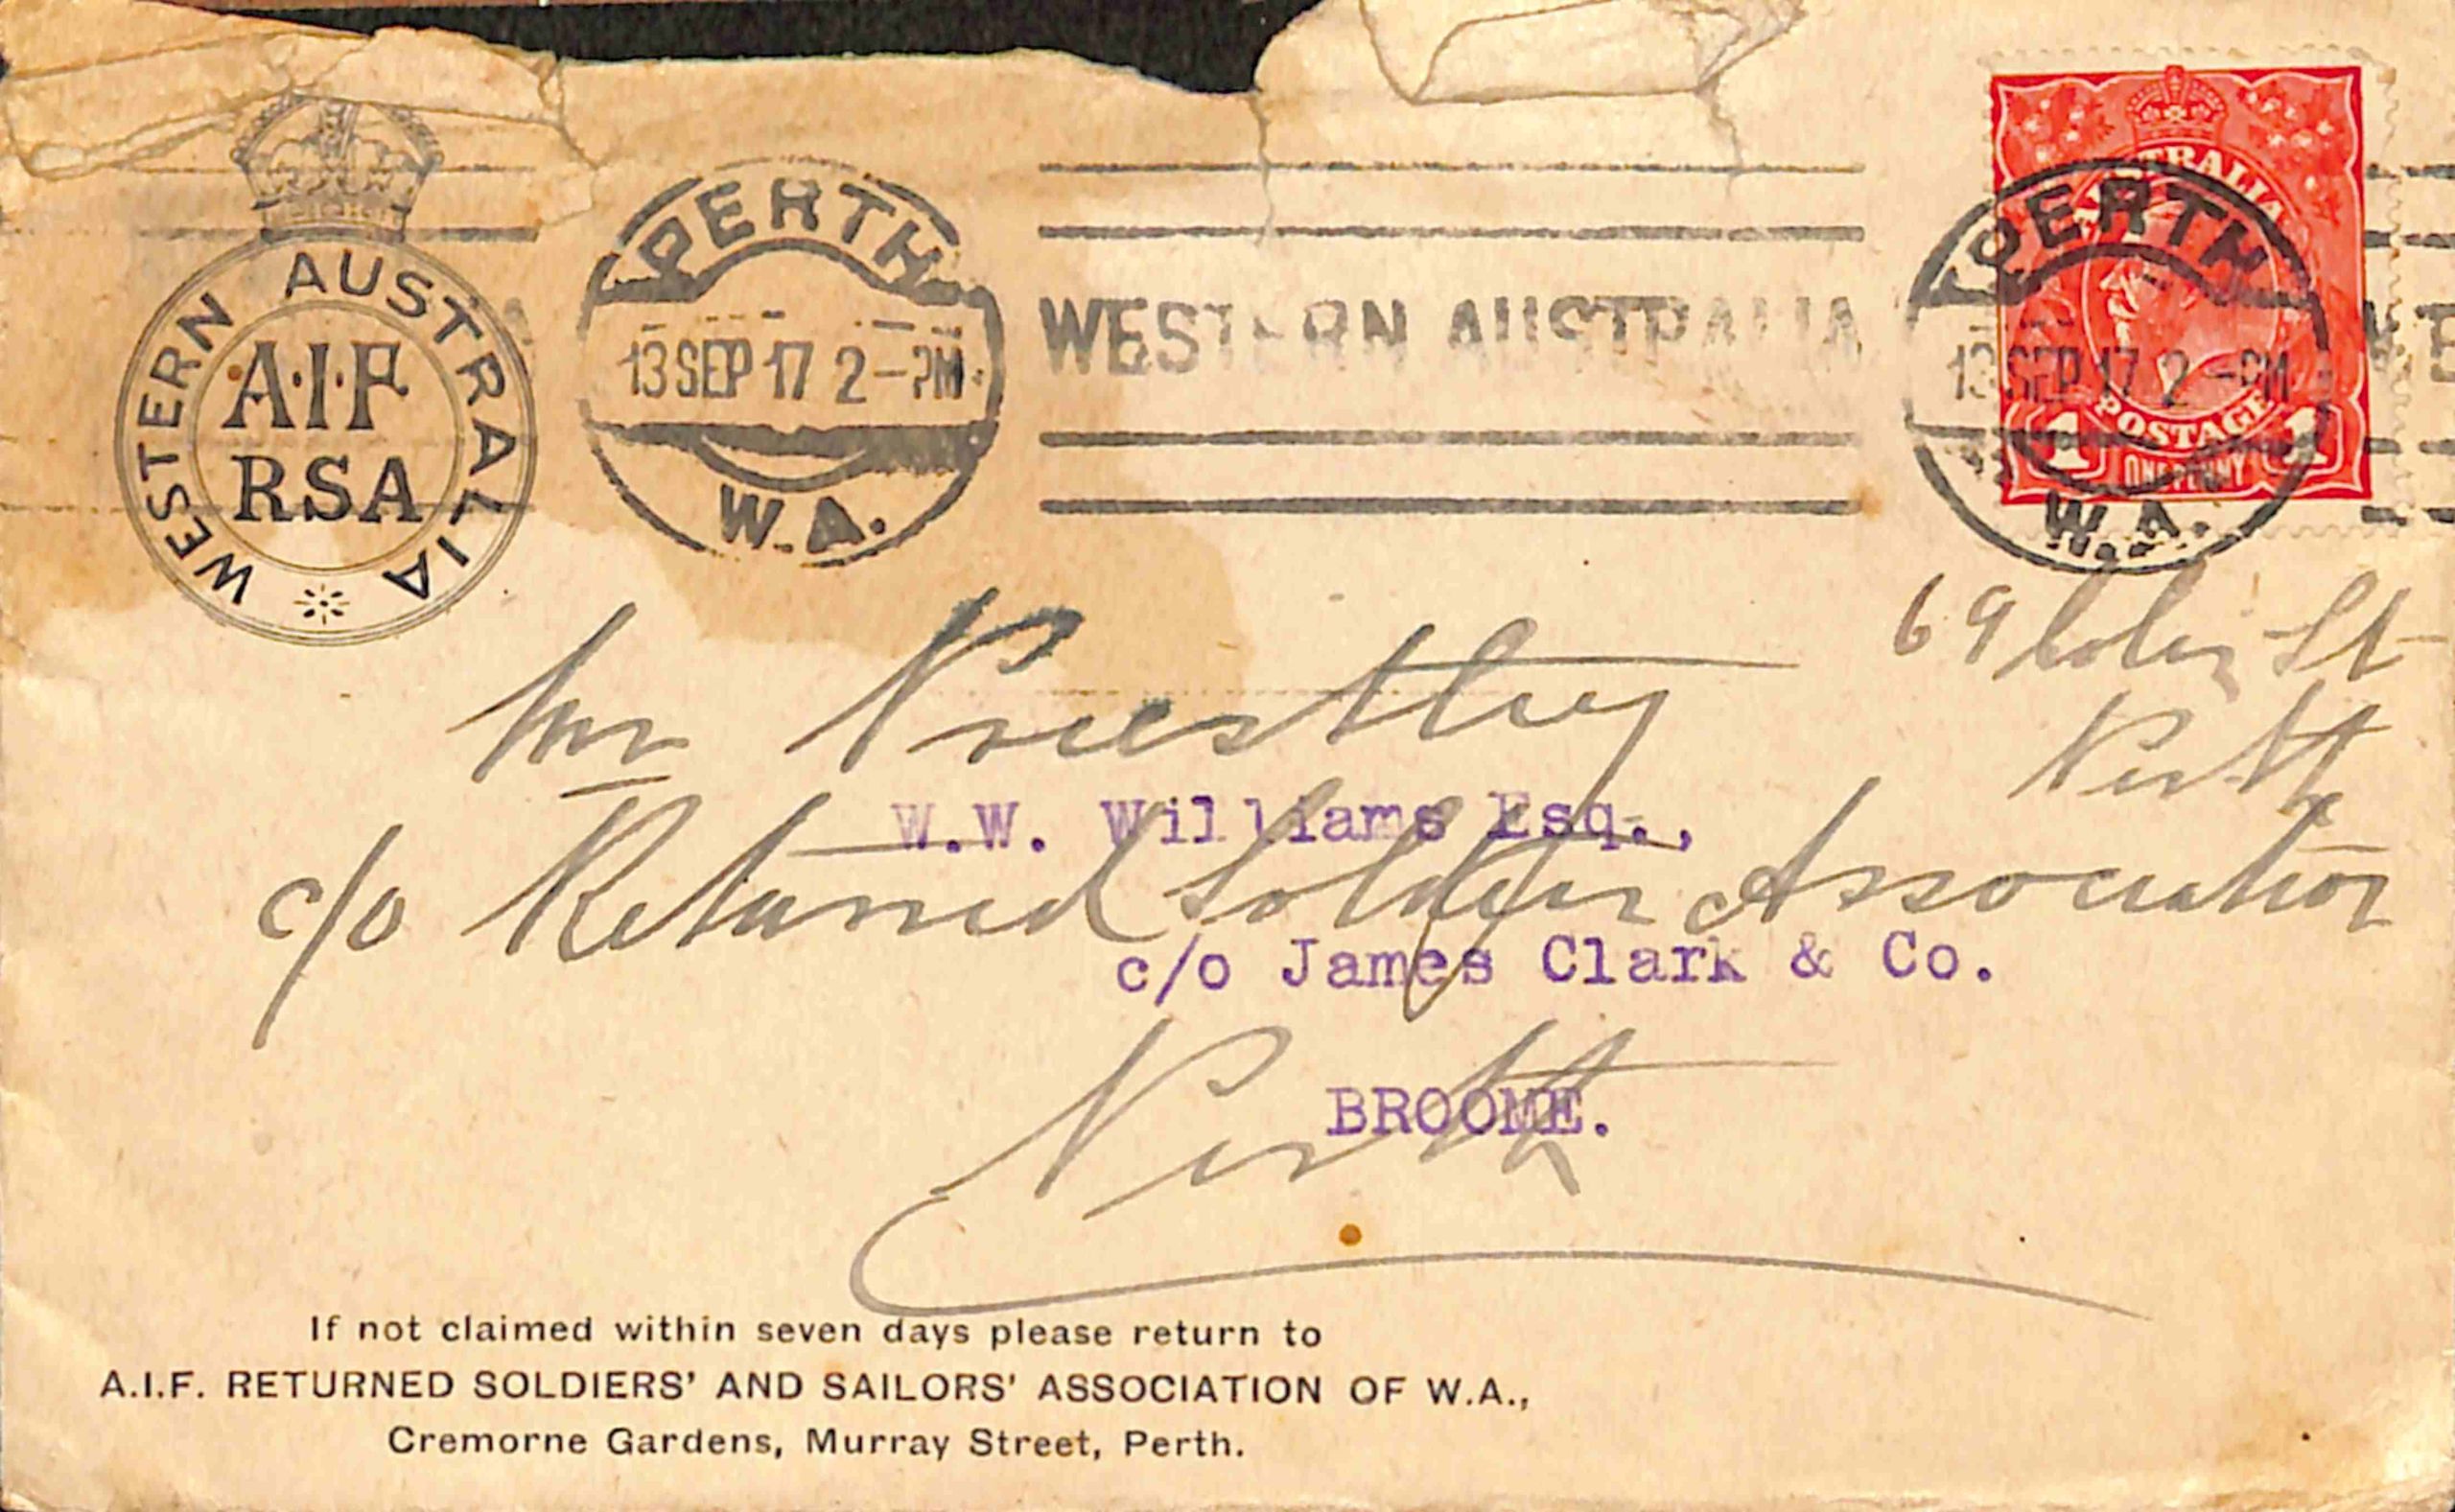 WESTERN AUSTRALIA
A·I·F
RSA
PERTH
13 SEP 17 2-PM
W.A.
WESTERN AUSTRALIA
AUSTRALIA
POSTAGE
1 1
ONE PENNY
PERTH
13 SEP 17 2-PM
W.A.
69 St
Perth
Mr Priestley
W.W. Williams Esq.,
c/o Returned Soldiers Association
c/o James Clark & Co.
Perth
BROOME.
If not claimed within seven days please return to
A.I.F. RETURNED SOLDIERS' AND SAILORS' ASSOCIATION OF W.A.,
Cremorne Gardens, Murray Street, Perth.